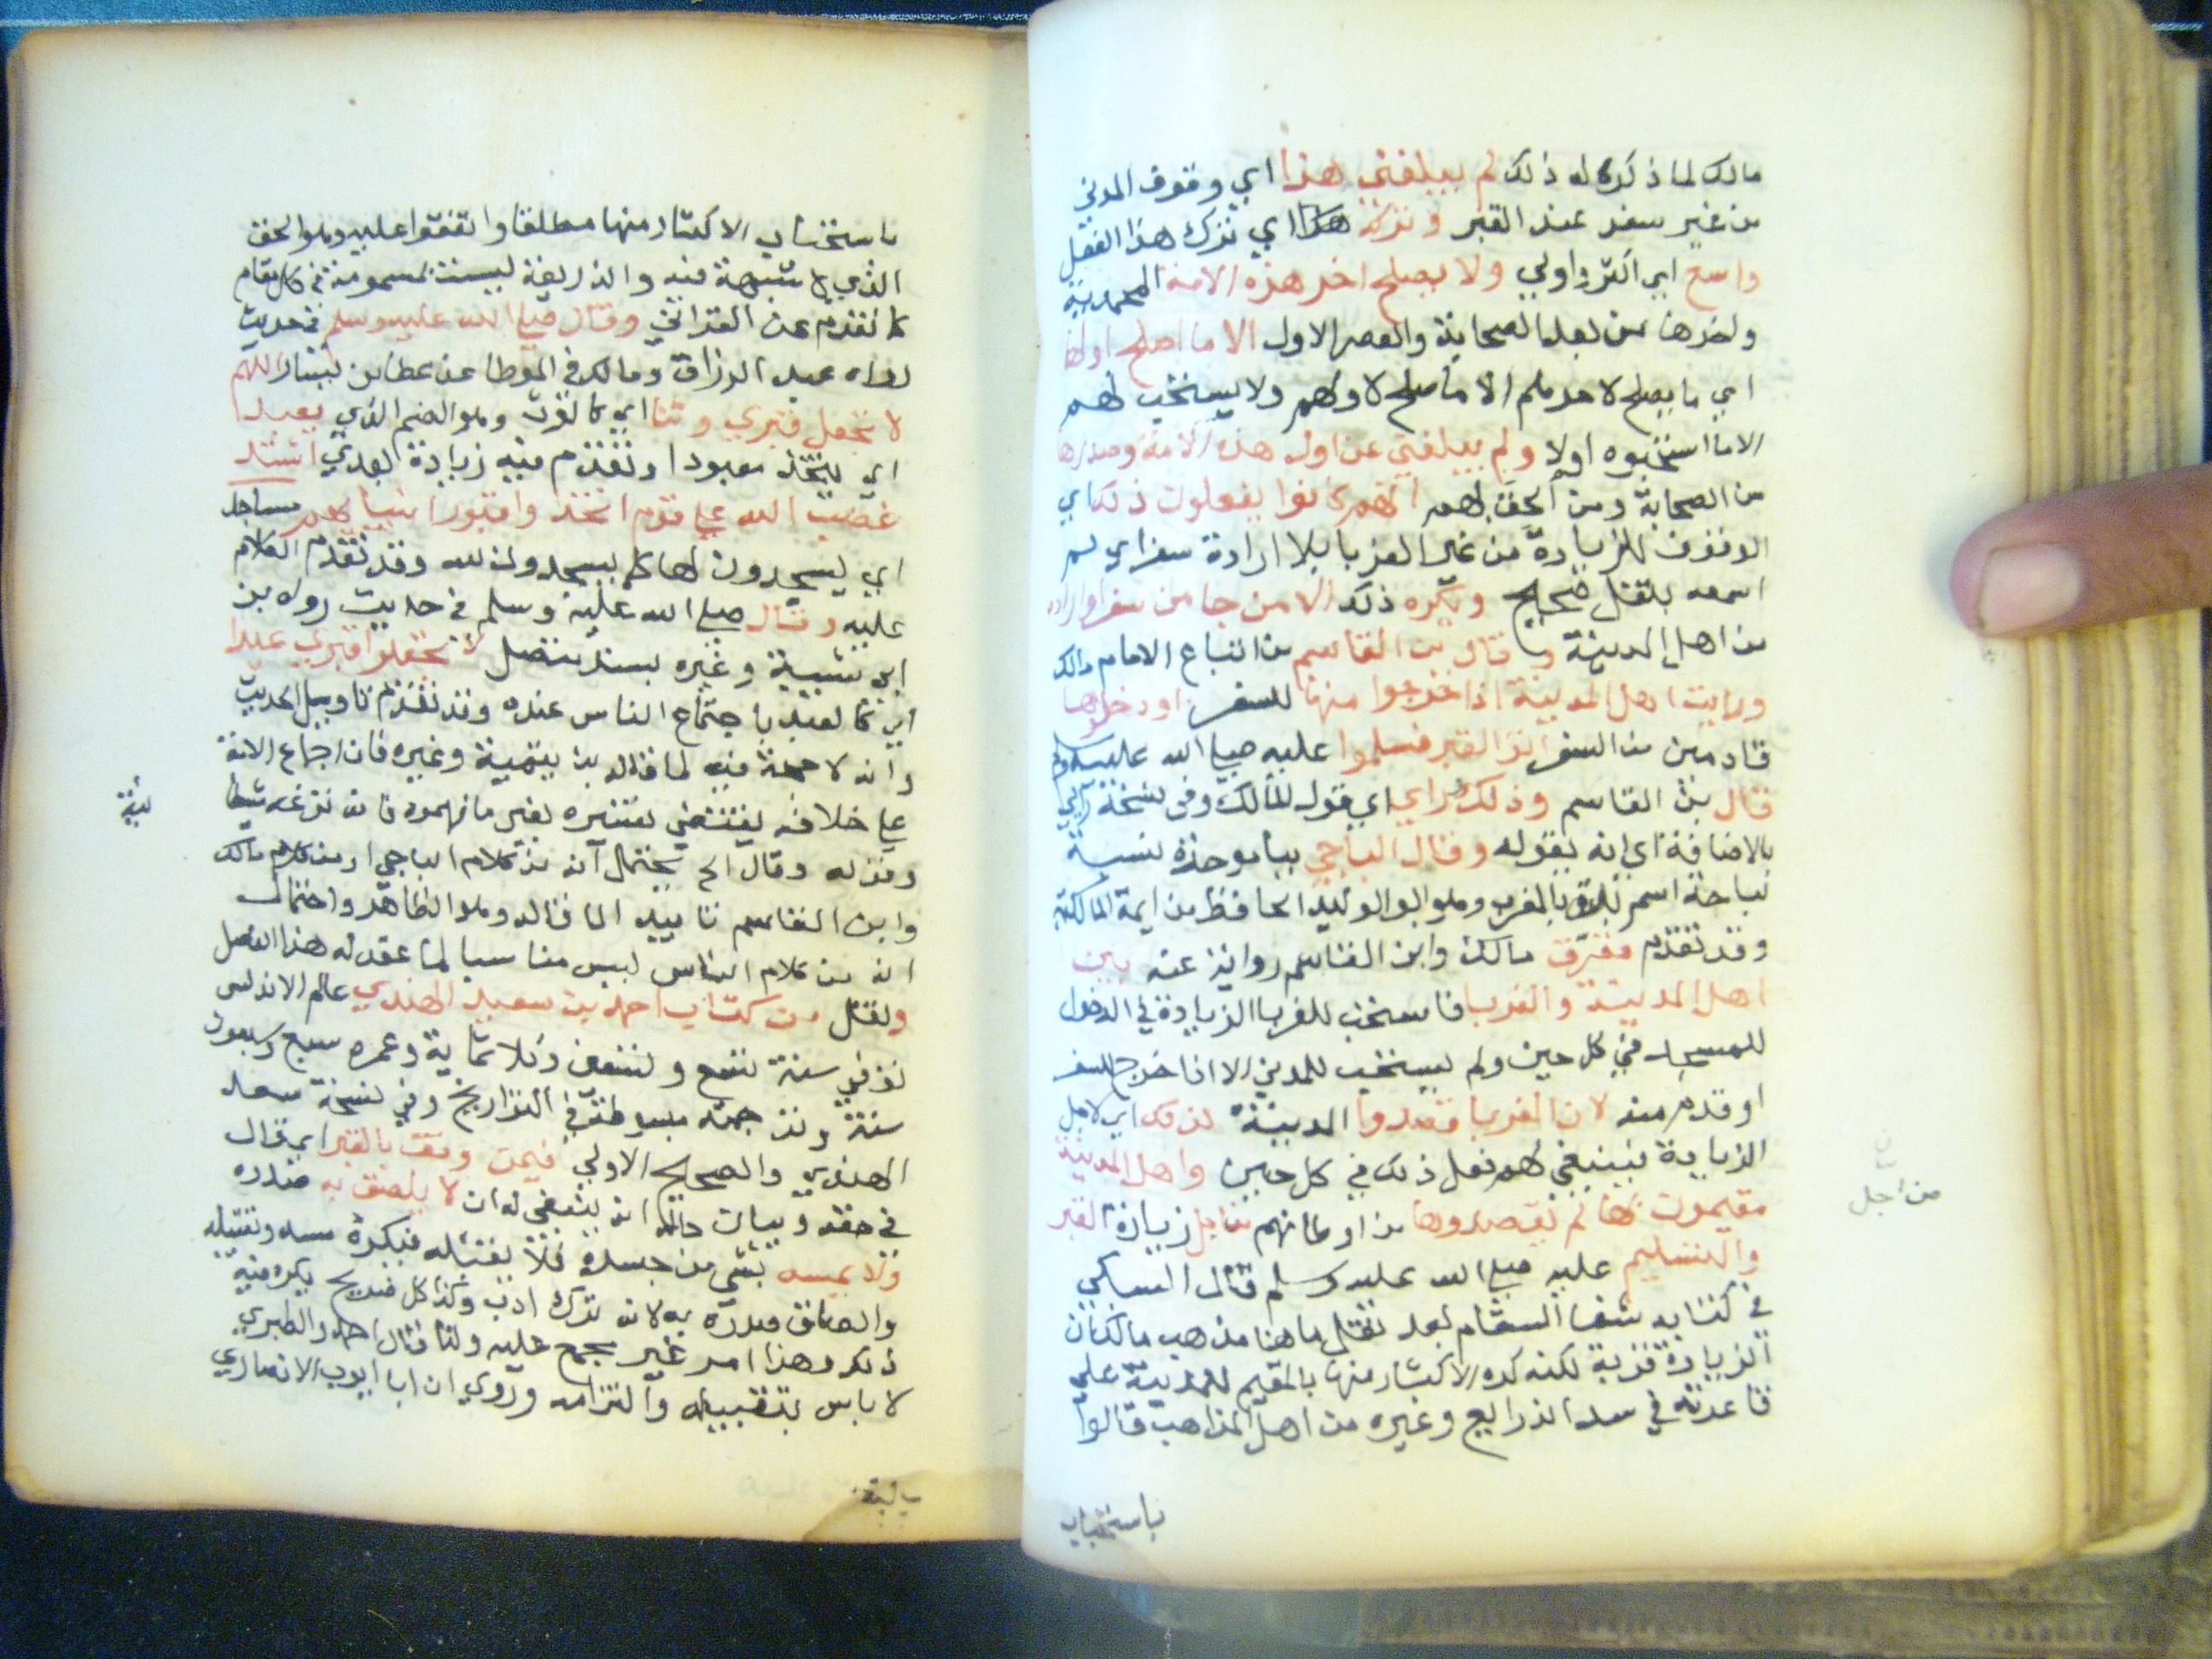 مالك لما ذكره له ذلك لم يبلغني هذا اي وقوف المدني
من غير سفر عند القبر وتركه هكذا اي ترك هذا الفعل
واسع اي اكثر واولى ولا يصلح اخر هذه الامة المحمدية
واخرها من بعد الصحابة والعصر الاول الا ما اصلح اولها
اي ما يصلح لاحد منهم الا ما صلح لاولهم ولا يستحب لهم
الا ما استحبوه اولا ولم يبلغني عن اول هذه الامة وصدرها
من الصحابة ومن الحق بهم انهم كانوا يفعلون ذلك اي
الوقوف للزيارة من غير الغربا بلا ارادة سفر اي لم
اسمعه بنقل صحيح ويكره ذلك الا من جا من سفر او اراده
من اهل المدينة وقال بن القاسم من اتباع الامام مالك
ورايت اهل المدينة اذا خرجوا منها للسفر او دخلوها
قادمين من السفر اتوا القبر فسلموا عليه صلى الله عليه وسلم
قال بن القاسم وذلك راي اي قول لمالك وفي نسخة رايي
بالاضافة اي انه يقوله وقال الباجي ببا موحدة نسبة
لباجة اسم بلدة بالمغرب وهو ابو الوليد الحافظ من ايمة المالكية
وقد تقدم ففرق مالك وابن القاسم رواية عنه بين
اهل المدينة والغربا فاستحب للغربا الزيارة في الدخول
للمسجد في كل حين ولم يستحب للمدني الا اذا خرج للسفر
او قدم منه لان الغربا قصدوا المدينة لذلك اي لاجل
الزيارة فينبغي لهم فعل ذلك في كل حين واهل المدينة
مقيمون بها لم يقصدوها من اوطانهم من اجل زيارة القبر
والتسليم عليه صلى الله عليه وسلم قال السبكي
في كتابه شفا السقام بعد نقل ما هنا مذهب مالك ان
الزيارة قربة لكنه كره الاكثار منها بالمقيم للمدينة على
قاعدته في سد الذرايع وغيره من اهل المذاهب قالوا
باستحباب
من اجل
باستحباب الاكثار منها مطلقا واتفقوا عليه وهو الحق
الذي لا شبهة فيه والذريعة ليست بمسمومة في كل مقام
كما تقدم عن القرافي وقال صلى الله عليه وسلم في حديث
رواه عبد الرزاق ومالك في الموطا عن عطا بن يسار اللهم
لا تجعل قبري وثنا اي كالوثن وهو الصنم الذي يعبد
اي يتخذ معبودا وتقدم فيه زيادة بعدي اشتد
غضب الله على قوم اتخذوا قبور انبيائهم مساجد
اي يسجدون لها كما يسجدون لله وقد تقدم الكلام
عليه وقال صلى الله عليه وسلم في حديث رواه بن
ابي شيبة وغيره بسند متصل لا تجعلوا قبري عيدا
اي كالعيد باجتماع الناس عنده وقد تقدم تاويل الحديث
وانه لا حجة فيه لما قاله بن تيمية وغيره فان اجماع الامة
على خلافه يقتضي تفسيره بغير ما فهموه فانه نزغه شيطانية
وقوله وقال الخ يحتمل انه من كلام الباجي او من كلام مالك
وابن القاسم تاييد الما قاله وهو الظاهر واحتمال
انه من كلام الناس ليس مناسبا لما عقد له هذا الفصل
ونقل من كتاب احمد بن سعيد الهندي عالم الاندلس
توفي سنة تسع وتسعين وثلاثماية وعمره سبع وسبعون
سنة وترجمته مبسوطة في التواريخ وفي نسخة سعد
الهندي والصحيح الاولى فيمن وقف بالقبر اي قال
في حقه وبيان حاله انه ينبغي له ان لا يلصق به صدره
ولا يمسه بشي من جسده فلا يقبله فيكره مسه وتقبيله
والصاق صدره به لانه ترك ادب وكذا كل ضريح يكره فيه
ذلك وهذا امر غير مجمع عليه ولذا قال احمد والطبري
لا باس بتقبيله والتزامه وروي ان ابا ايوب الانصاري